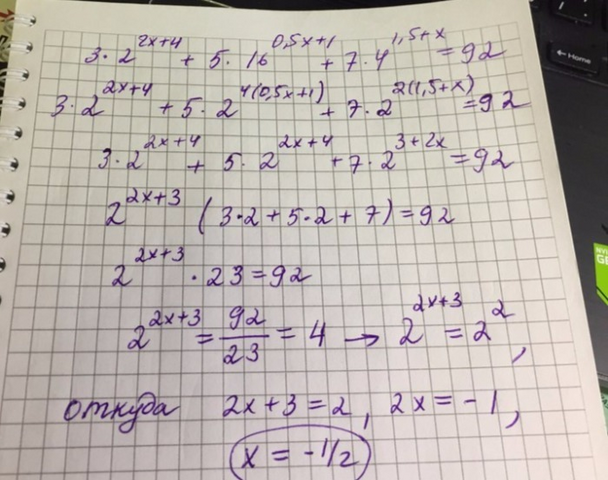 3·2^{2x+4} + 5·16^{0,5x+1} + 7·4^{1,5+x} = 92
3·2^{2x+4} + 5·2^{4(0,5x+1)} + 7·2^{2(1,5+x)} = 92
3·2^{2x+4} + 5·2^{2x+4} + 7·2^{3+2x} = 92
2^{2x+3} (3·2+5·2+7) = 92
2^{2x+3} · 23 = 92
2^{2x+3} = 92/23 = 4 → 2^{2x+3} = 2^2,
откуда 2x+3=2, 2x=-1,
x = -1/2
← Home